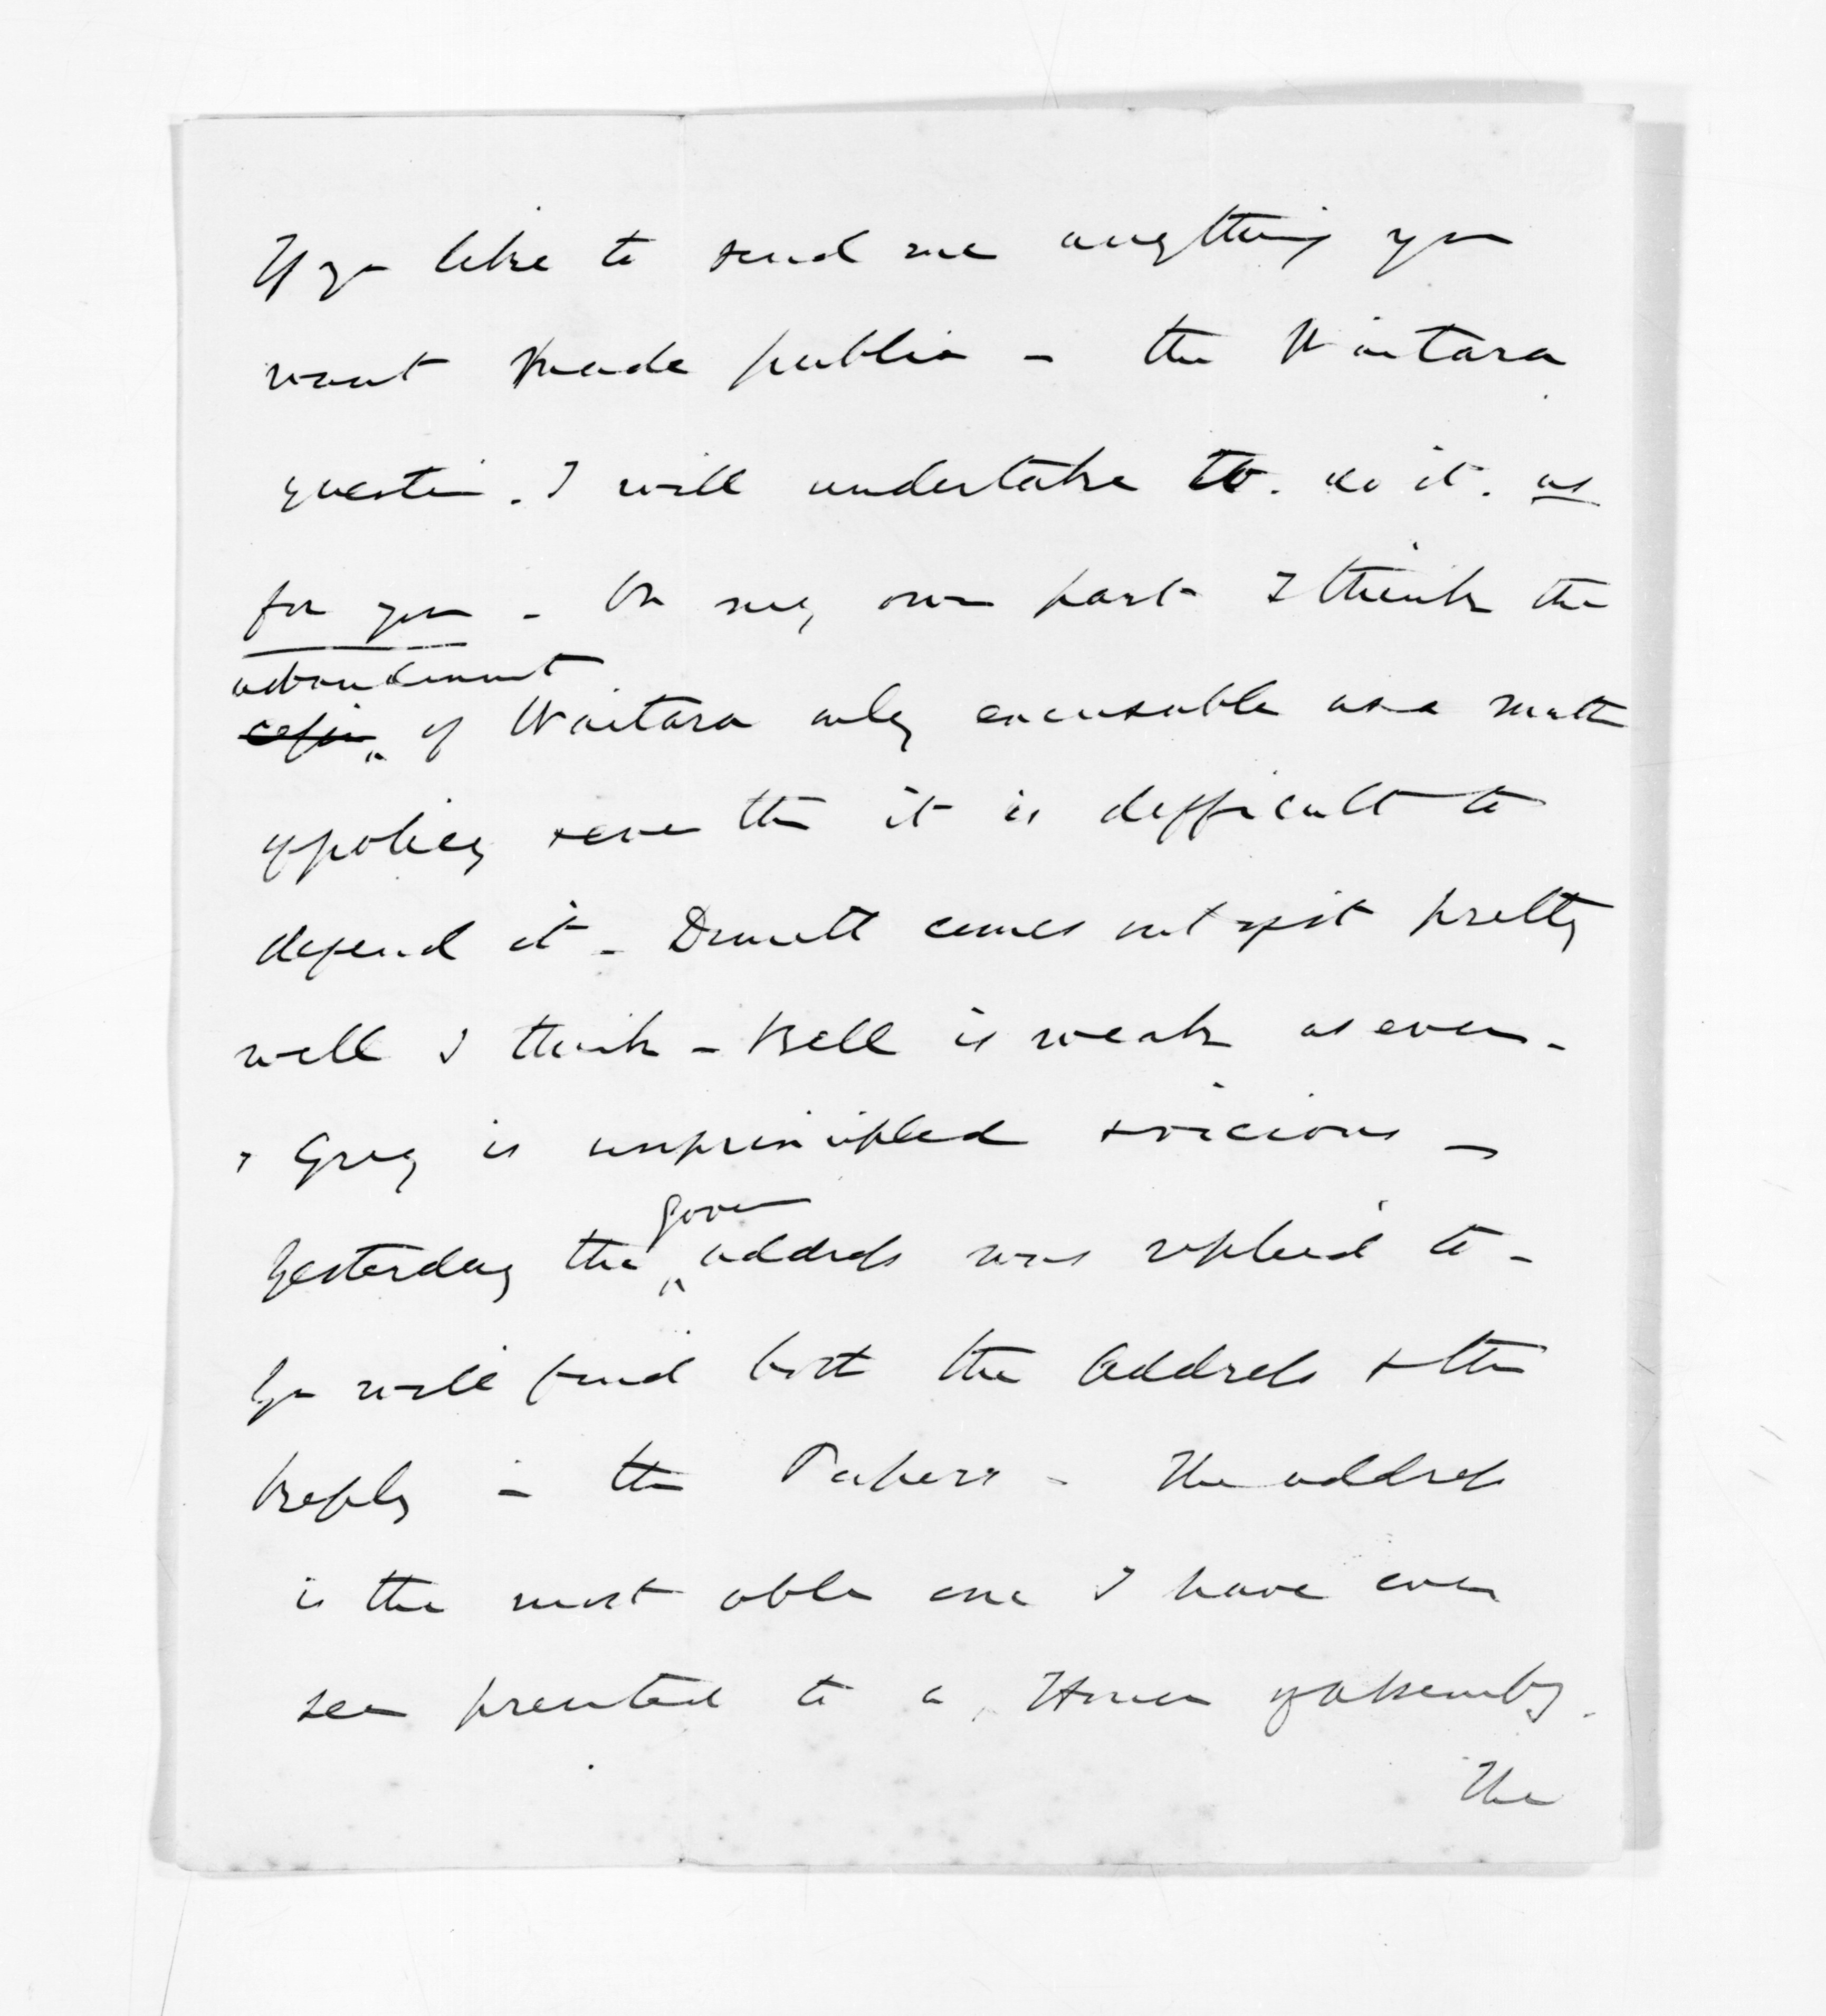 If you like to send me anything you
want made public - the Waitara
question. I will undertake to. do it. as
for you - On my own part I think the
abandonment
of Waitara only excusable as a matter
of policy & even then it is difficult to
defend it - comes out of it pretty
well I think - Bell is weak as ever -
& Grey is unprincipled & vicious -
Yesterday the address was replied to -
Gover
You will find both the Address & the
Reply in the Papers - The address
is the most able one I have ever
seen presented to a House of Assembly.
The